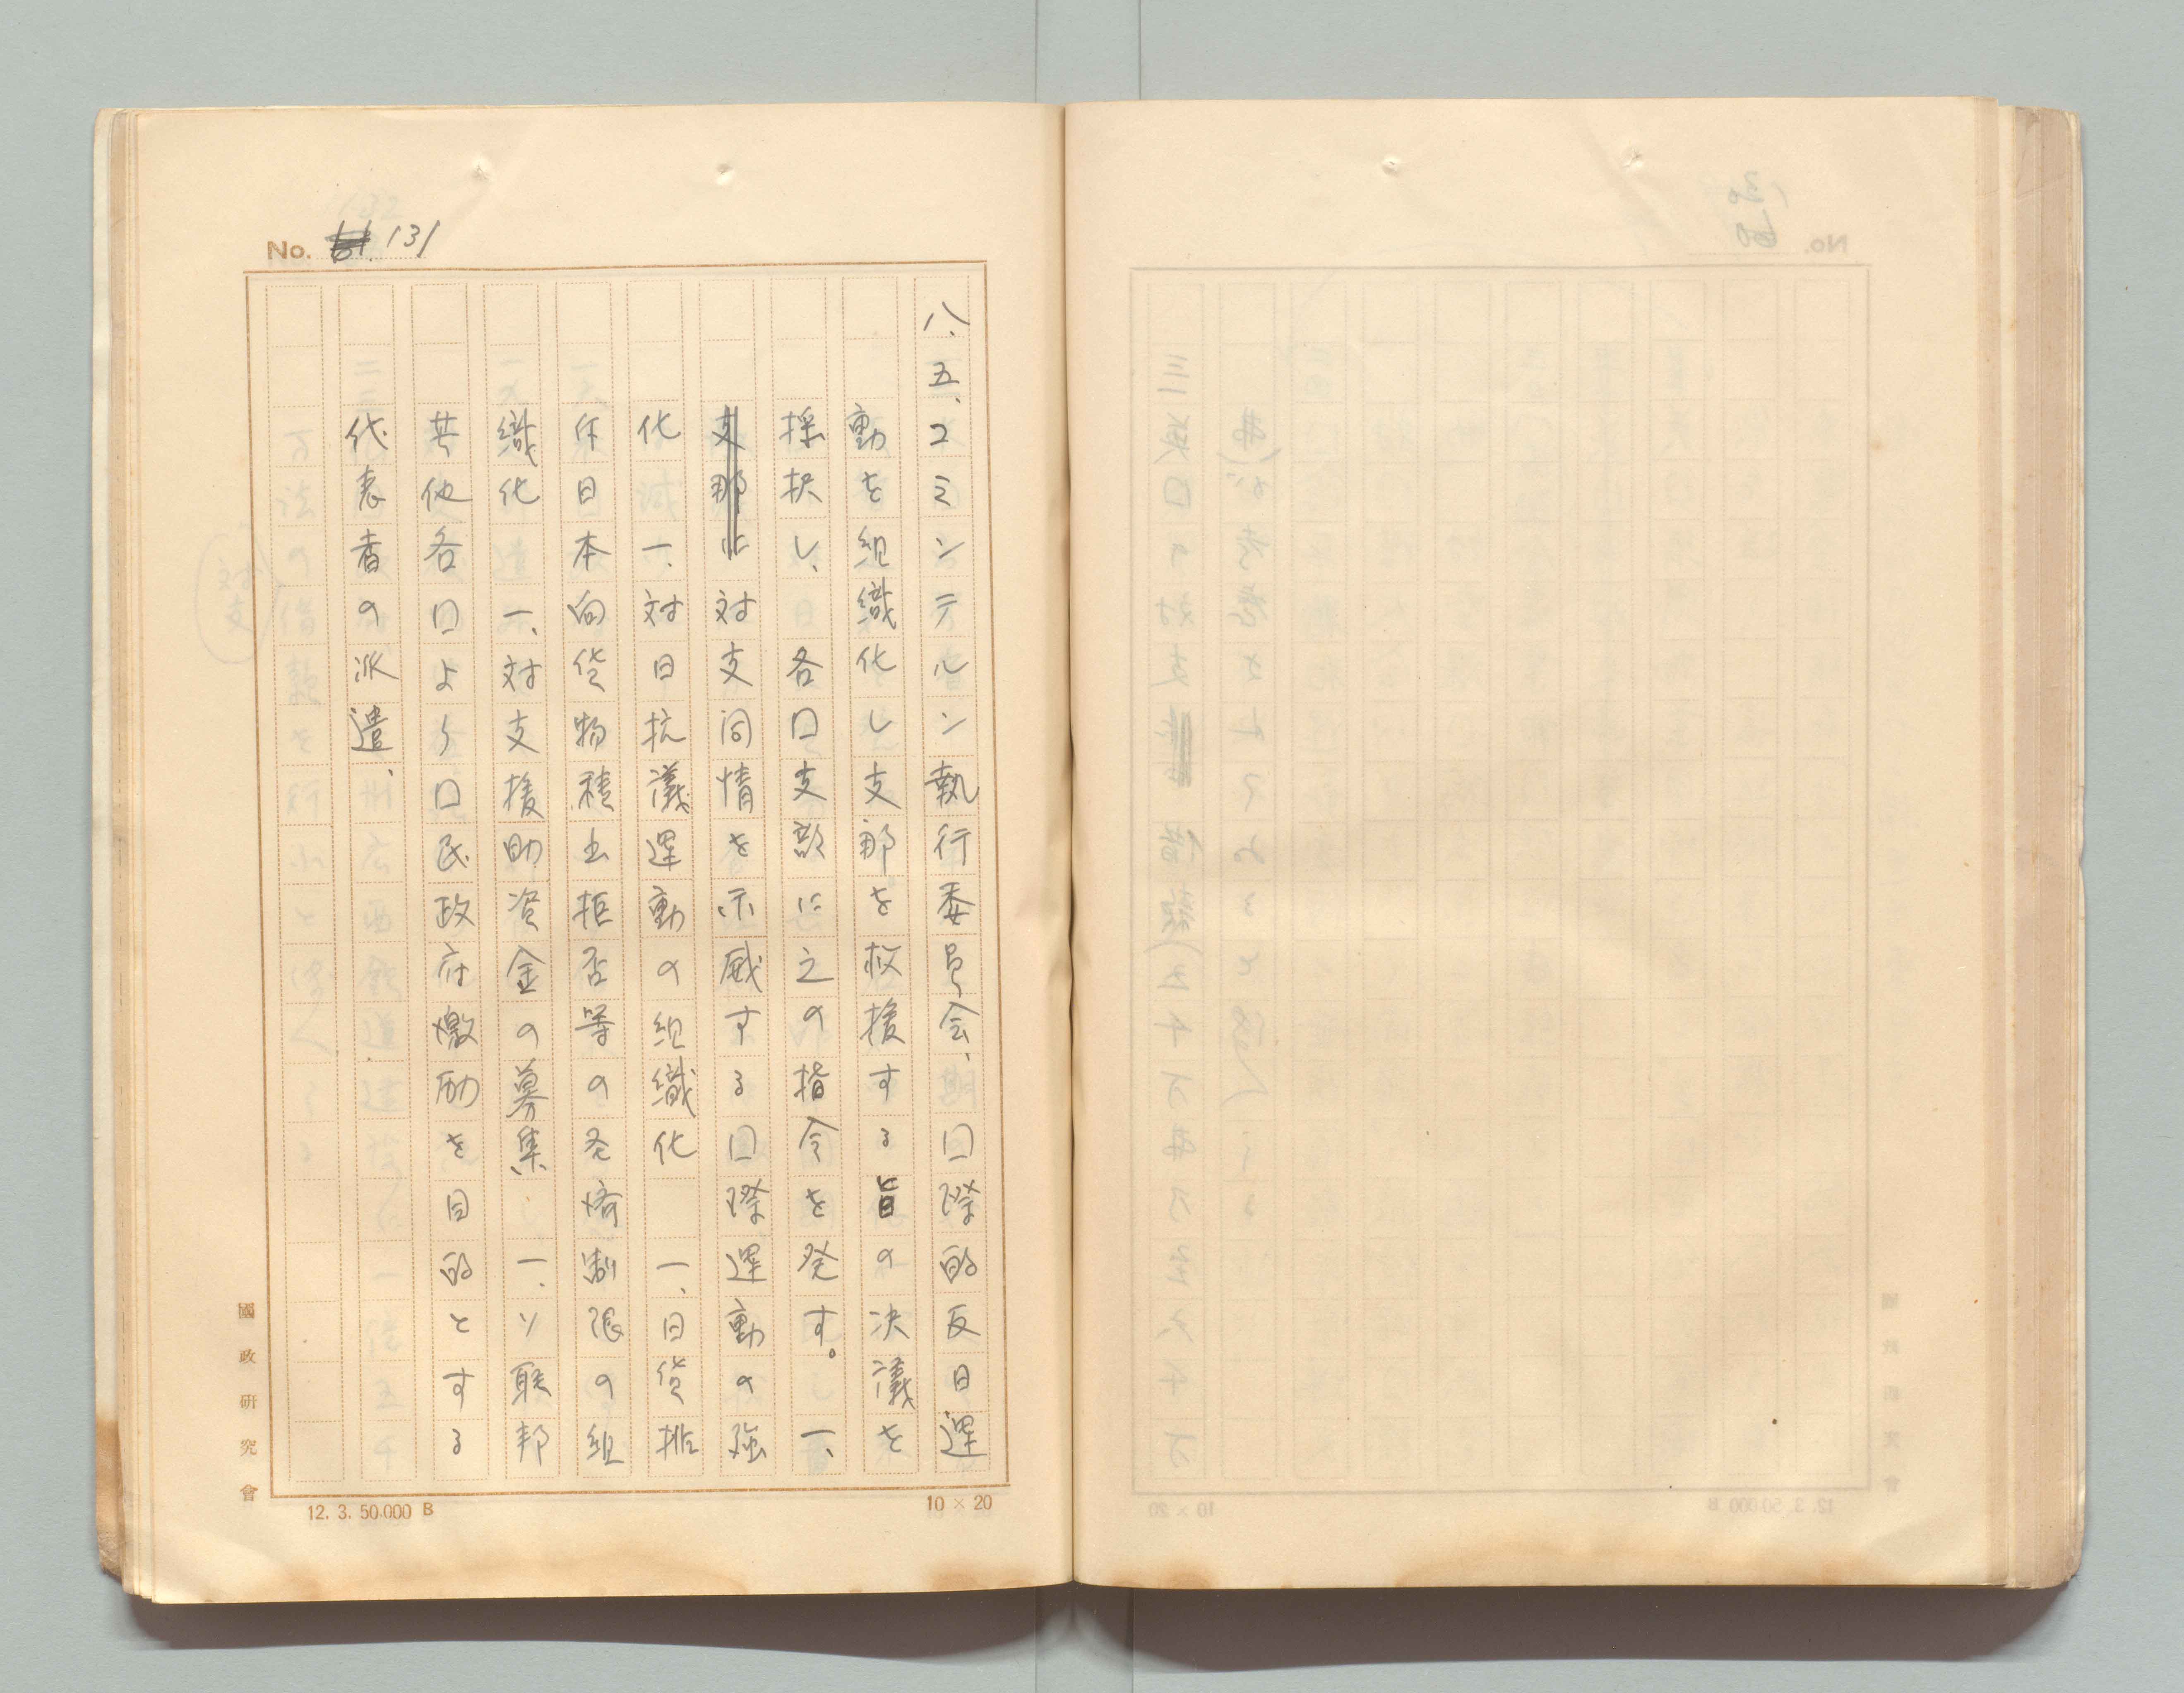 No. 131
八、五、コミンテルン執行委員会、口際的反日運
動を組織化し支那を救援する旨の決議を
採択し、各口支部に之の指令を発す。一、
対支同情を示威する口際運動の強
化 一、対日抗議運動の組織化 一、日貨排
斥日本向貨物積出拒否等の圣済制限の組
織化 一、対支援助資金の募集 一、ソ联邦
其他各口より口民政府激励を目的とする
代表者の派遣、
國政研究會
12. 3. 50.000 B
10 × 20